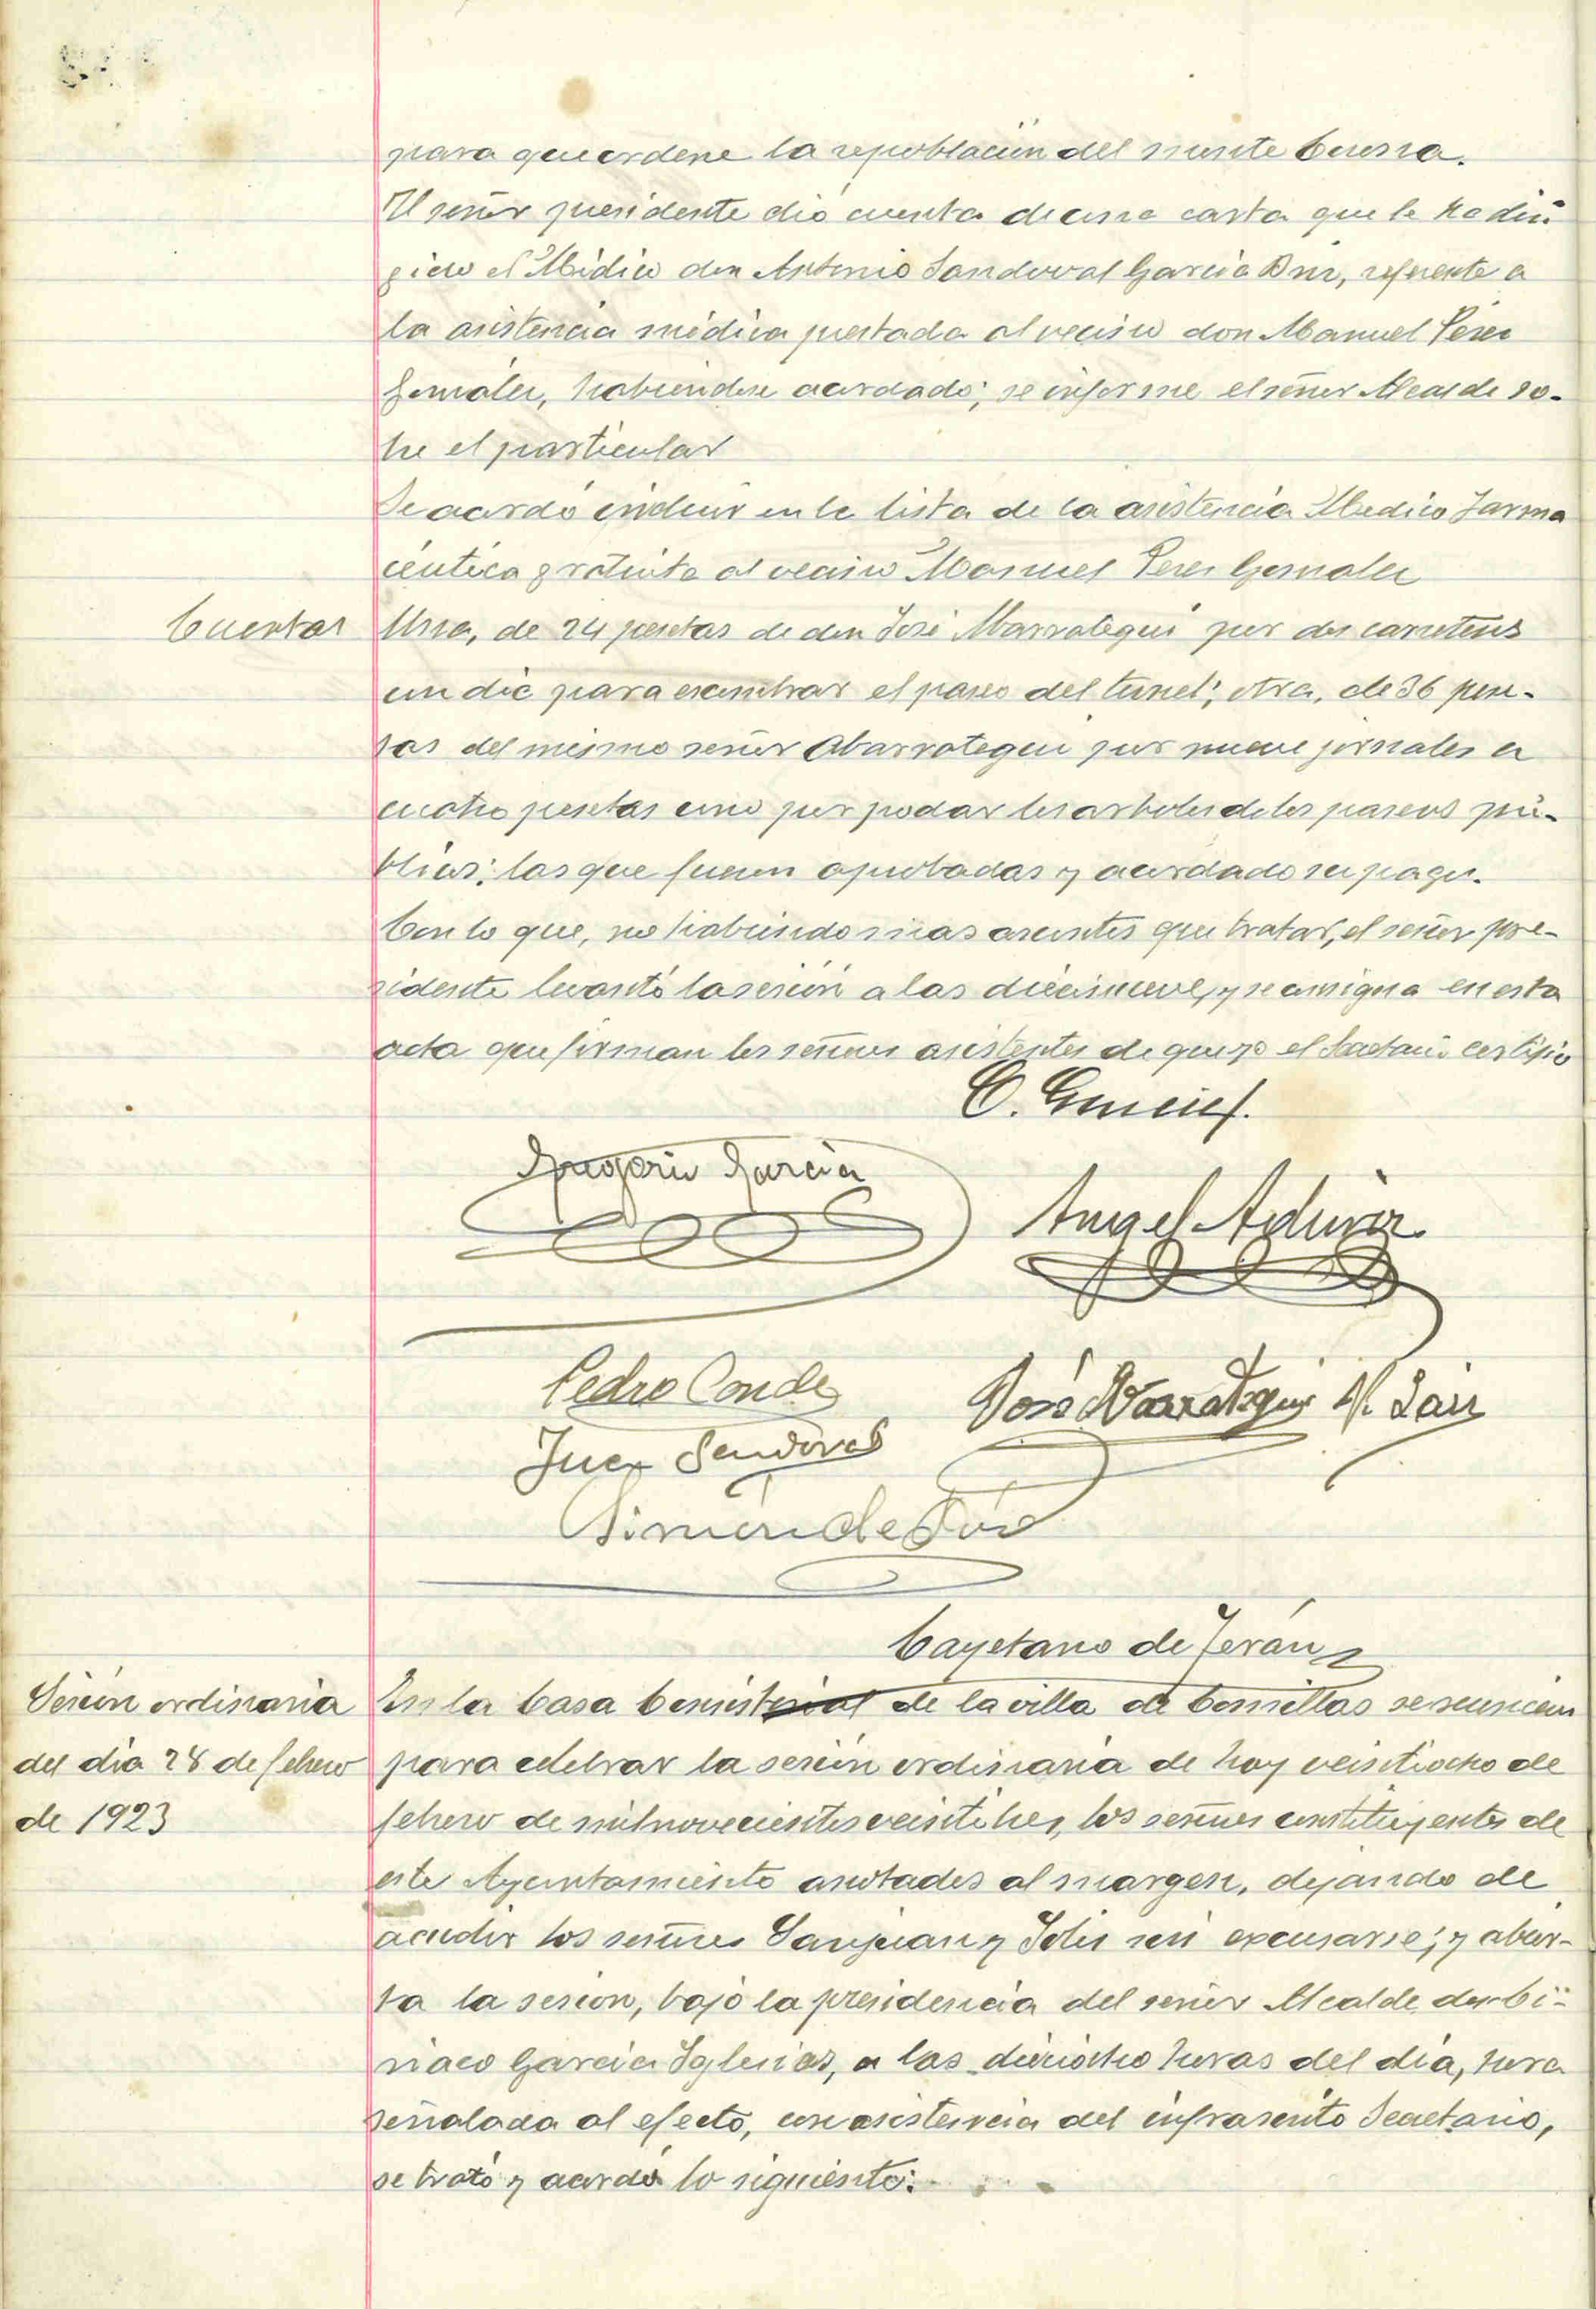 para que ordene la repoblación del monte Corona.
El señor presidente dió cuenta de una carta que le ha diri
gido el Médico don Antonio Sandoval Garcia Briz, referente a
la asistencia médica prestada al vecino don Manuel Perez
Gonzalez, habiendose acordado; se informe el señor Alcalde so-
bre el particular
Se acordó incluir en la lista de la asistencia Medico Farma
céutica gratuita al vecino Manuel Perez Gonzalez
Cuentas
Una, de 24 pesetas de don José Marrategui por dos carreteros
un dia para escombrar el paseo del tunel; otra, de 36 pese-
tas del mismo señor Marrategui por nueve jornales a
cuatro pesetas uno por podar los arboles de los paseos pú-
blicos; las que fueron aprobadas y acordado su pago.
Con lo que, no habiendo mas asuntos que tratar, el señor pre-
sidente levantó la sesión a las diecinueve, y se consigna en esta
acta que firman los señores asistentes de que yo el Secretario certifico
C.
Gregorio Garcia
Angel
Pedro Conde
José Marrategui M. Saiz
Juan Sandoval
Simón de
Cayetano de Terán
Sesión ordinaria
del dia 28 de febrero
de 1923
En la Casa Consistorial de la villa de Comillas se reunieron
para celebrar la sesión ordinaria de hoy veintiocho de
febrero de mil novecientos veintitres, los señores constituyentes de
este Ayuntamiento anotados al margen, dejando de
acudir los señores Sanjuan y Solis sin excusarse; y abier-
ta la sesion, bajo la presidencia del señor Alcalde don Ci-
riaco Garcia Iglesias, a las dieciocho horas del dia, hora
señalada al efecto, con asistencia del infrascrito Secretario,
se trató y acordó lo siguiente: